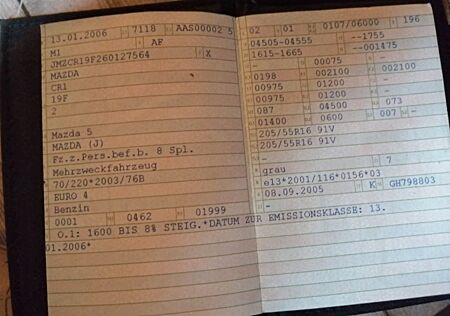 13.01.2006 7118 AAS00002 5
M1 AF
JMZCR19F260127564 X
MAZDA
CR1
19F
2
Mazda 5
MAZDA (J)
Fz.z.Pers.bef.b. 8 Spl.
Mehrzweckfahrzeug
70/220*2003/76B
EURO 4
Benzin
0001 0462 01999
O.1: 1600 BIS 8% STEIG.*DATUM ZUR EMISSIONSKLASSE: 13.
01.2006*
02 01 0107/06000 196
04505-04555 --1755
1615-1665 --001475
- 00075 -
0198 002100 002100
00975 01200 -
00975 01200 -
087 04500 073
01400 0600 007 -
205/55R16 91V
205/55R16 91V
-
grau 7
e13*2001/116*0156*03
08.09.2005 K GH798803
-